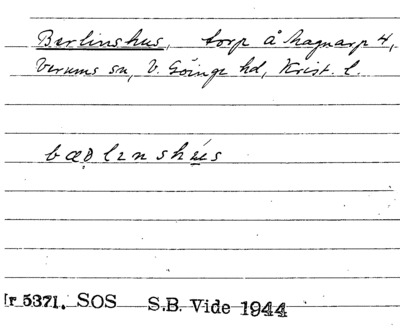 Berlinshus, torp å Magnarp 4,
Verums sn, V. Göinge hd, Krist. l.
bæ̣ḷınshú̲s
Nr 5371. SOS S.B. Vide 1944